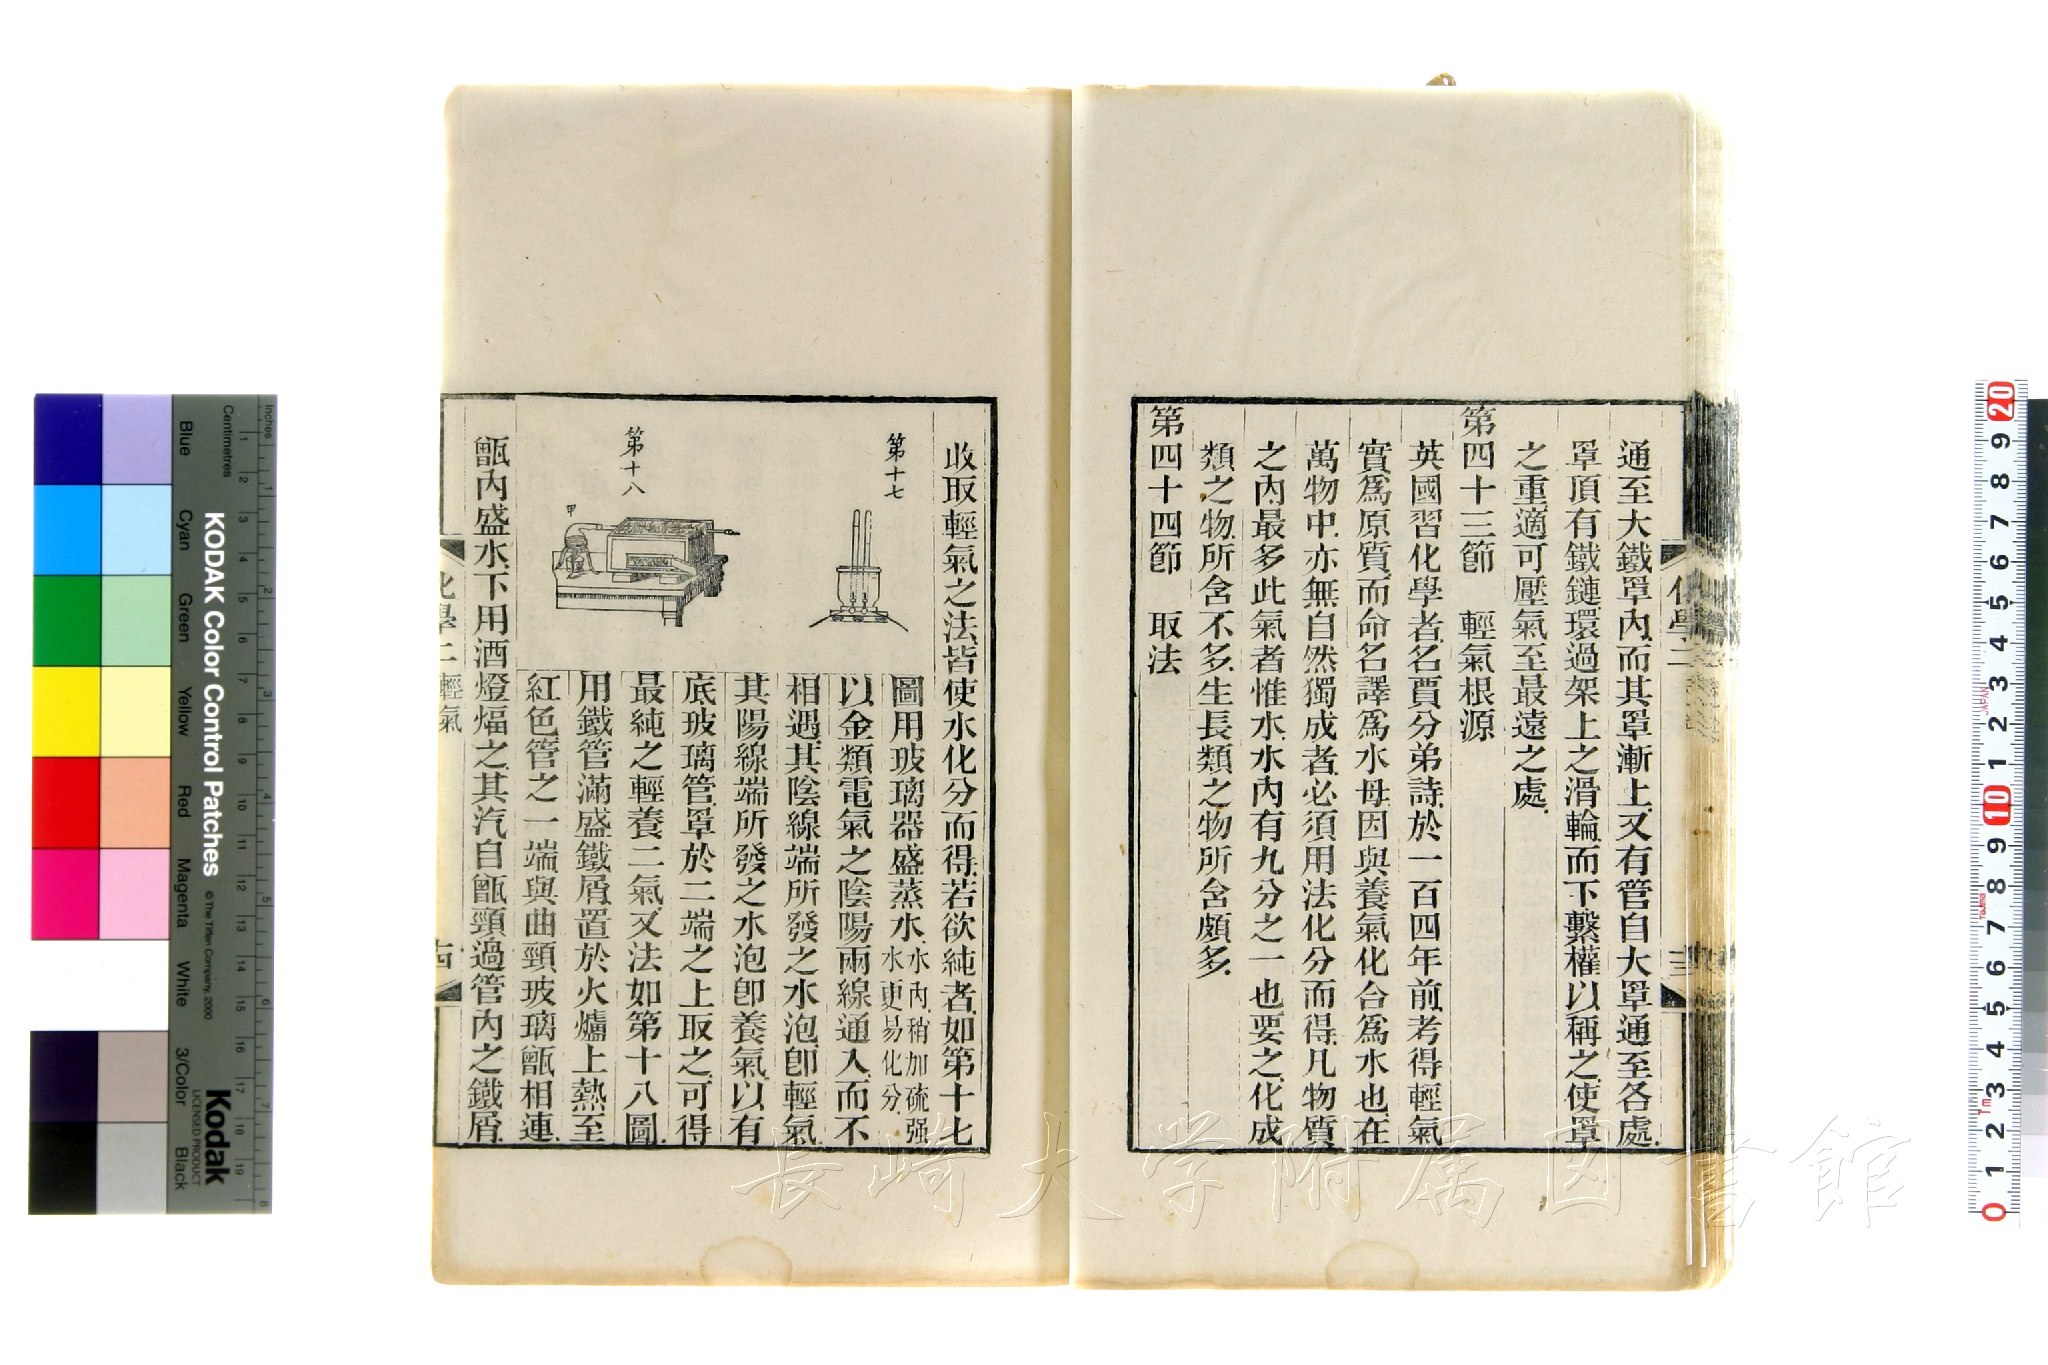 通至大鐵罩內而其罩漸上又有管自大罩通至各處
罩頂有鐵鏈環過架上之滑輪而下繫權以稱之使罩
之重適可壓氣至最遠之處
第四十三節　輕氣根源
英國習化學者名賈分弟詩於一百四年前考得輕氣
實爲原質而命名譯爲水母因與養氣化合爲水也在
萬物中亦無自然獨成者必須用法化分而得凡物質
之內最多此氣者惟水水內有九分之一也要之化成
類之物所含不多生長類之物所含頗多
第四十四節　取法
收取輕氣之法皆使水化分而得若欲純者如第十七
圖用玻璃器盛蒸水水內稍加硫强
水更易化分
以金類電氣之陰陽兩線通入而不
相遇其陰線端所發之水泡卽輕氣
其陽線端所發之水泡卽養氣以有
底玻璃管罩於二端之上取之可得
最純之輕養二氣又法如第十八圖
用鐵管滿盛鐵屑置於火爐上熱至
紅色管之一端與曲頸玻璃甑相連
甑內盛水下用酒燈煏之其汽自甑頸過管內之鐵屑
第十七
第十八
甲
化學二 輕氣
十四
化學二
十三
長崎大学附属図書館
KODAK Color Control Patches
© The Tiffen Company, 2000
Kodak
LICENSED PRODUCT
Inches
Centimetres
Blue
Cyan
Green
Yellow
Red
Magenta
White
3/Color
Black
1 2 3 4 5 6 7 8
1 2 3 4 5 6 7 8 9 10 11 12 13 14 15 16 17 18 19
20 9 8 7 6 5 4 3 2 1 10 9 8 7 6 5 4 3 2 1 0
JAPAN